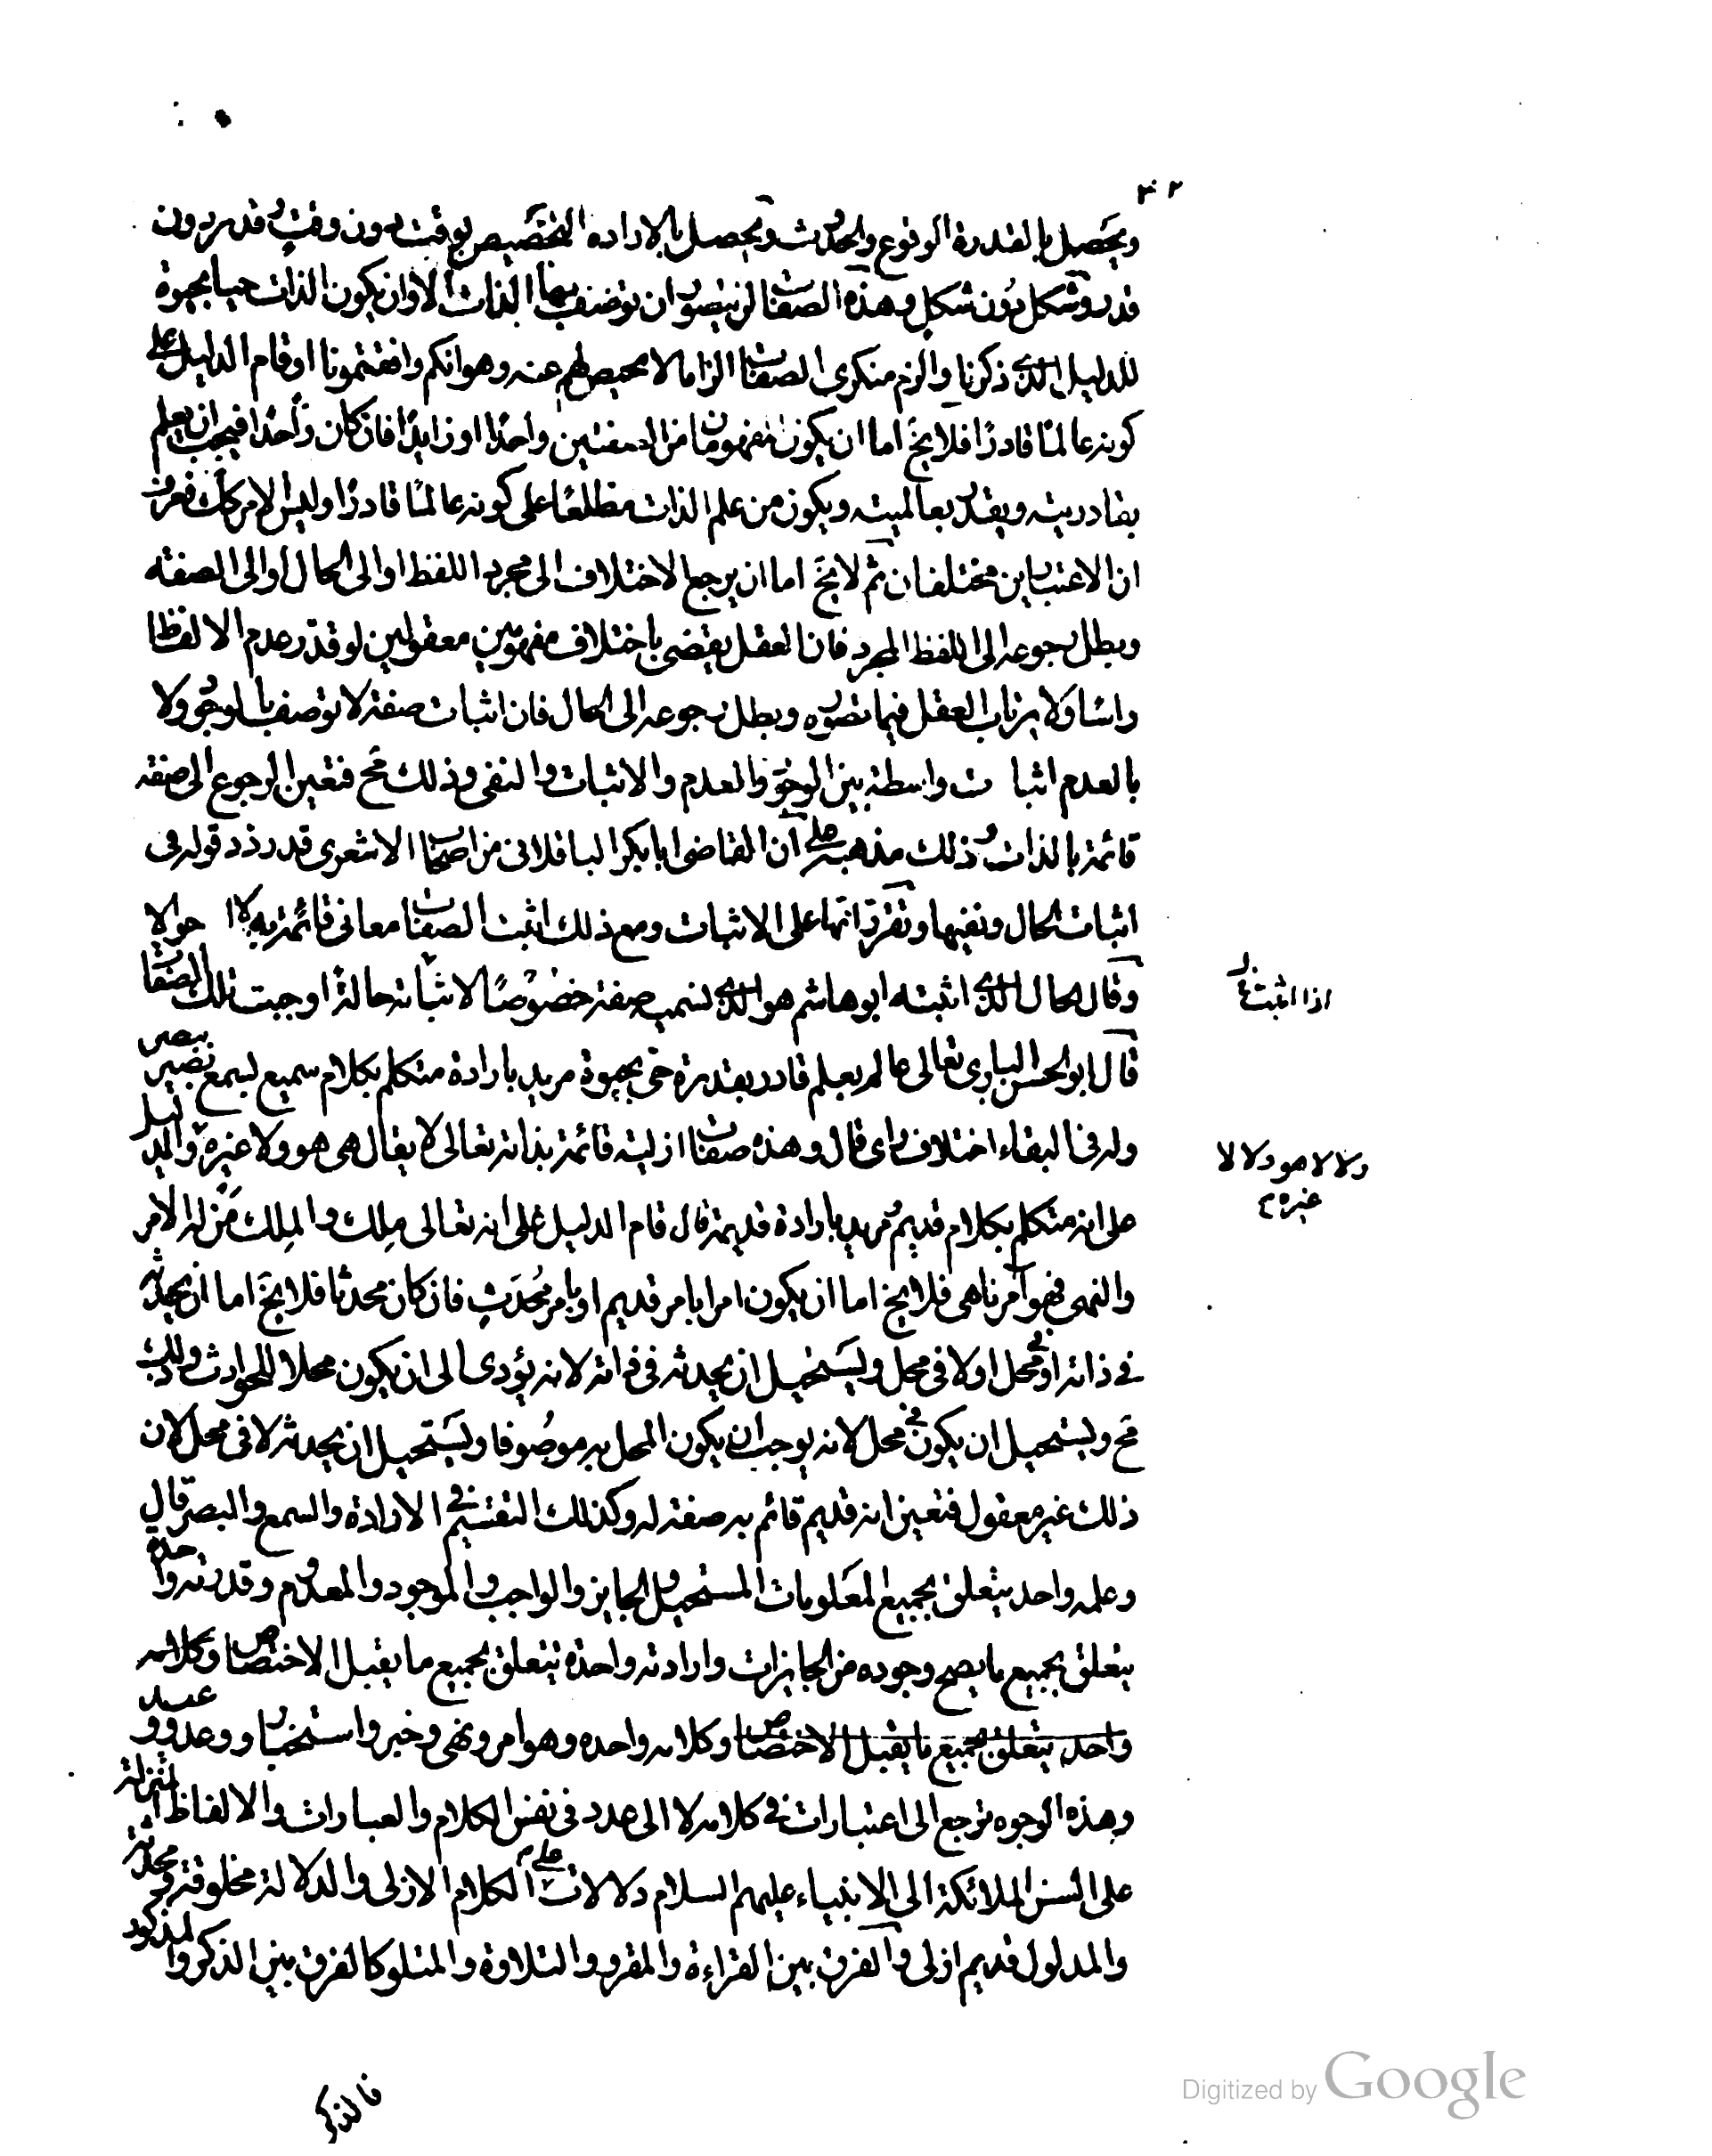 ٣٠٢
ويحصل بالقدرة الوقوع والحدوث ويحصل بالارادة التخصيص بوقت دون وقت وقدر دون
قدر وشكل دون شكل وهذه الصفات لن يتصور ان توصف بها الذات الا وان يكون الذات حيا بحيوة
للدليل الذى ذكرنا والزم منكرى الصفات الزاما لا محيص لهم عنه وهو انكم وافقتمونا او قام الدليل على
كونه عالما قادرا فلا يخ اما ان يكون المفهومان من الصفتين واحدا او زايدا فان كان واحدا فيجب ان يعلم
بقادريته ويقدر بعالميته ويكون من علم الذات مطلعا على كونه عالما قادرا وليس الامر كك فعرف
ان الاعتبارين مختلفان ثم لا يخ اما ان يرجع الاختلاف الى مجرد اللفظ او الى الحال او الى الصفة
وبطل رجوعه الى اللفظ المجرد فان العقل يقضى باختلاف مفهومين معقولين لو قدر عدم الالفاظ
راسا ولا يرتاب العقل فيما تصوره وبطل رجوعه الى الحال فان اثبات صفة لا توصف بالوجود ولا
بالعدم اثبات واسطة بين الوجود والعدم والاثبات والنفى وذلك مح فتعين الرجوع الى صفة
قائمة بالذات وذلك مذهبه على ان القاضى ابا بكر الباقلانى من اصحاب الاشعرى قد ردد قوله فى
اثبات الحال ونفيها وتقرر انها على الاثبات ومع ذلك اثبت الصفات معانى قائمة به لا احوالا
وقال الحال الذى اثبته ابو هاشم هو الذى نسميه صفة خصوصا لاثباته حالة اوجبت تلك الصفات
اذا اثبت
قال ابو الحسن البارى تعالى عالم بعلم قادر بقدرة حى بحيوة مريد بارادة متكلم بكلام سميع بسمع بصير ببصر
وله فى البقاء اختلاف راى قال وهذه صفات ازلية قائمة بذاته تعالى لا يقال هى هو ولا غيره والدليل
ولا لا هو ولا لا
غيره م
على انه متكلم بكلام قديم مريد بارادة قديمة قال قام الدليل على انه تعالى ملك والملك من له الامر
والنهى فهو آمر ناهى فلا يخ اما ان يكون امرا بامر قديم او بامر محدث فان كان محدثا فلا يخ اما ان يحدثه
فى ذاته او فى محل او لا فى محل ويستحيل ان يحدثه فى ذاته لانه يؤدى الى ان يكون محلا للحوادث وذلك
مح ويستحيل ان يكون فى محل لانه يوجب ان يكون المحل به موصوفا ويستحيل ان يحدثه لا فى محل لان
ذلك غير معقول فتعين انه قديم قائم به صفة له وكذلك التقسيم فى الارادة والسمع والبصر قال
وعلمه واحد يتعلق بجميع المعلومات المستحيل والجايز والواجب والموجود والمعدوم وقدرته واحدة
يتعلق بجميع ما يصح وجوده من الجايزات وارادته واحدة يتعلق بجميع ما يقبل الاختصاص وكلامه
واحد يتعلق بجميع ما يقبل الاختصاص وكلامه واحده وهو امر ونهى وخبر واستخبار ووعد ووعيد
وهذه الوجوه ترجع الى اعتبارات فى كلامه لا الى عدد فى نفس الكلام والعبارات والالفاظ المنزلة
على السن الملائكة الى الانبياء عليهم السلام دلالات على الكلام الازلى والدلالة مخلوقة محدثة
والمدلول قديم ازلى والفرق بين القراءة والمقرو والتلاوة والمتلو كالفرق بين الذكر والمذكور
فالذكر
Digitized by Google